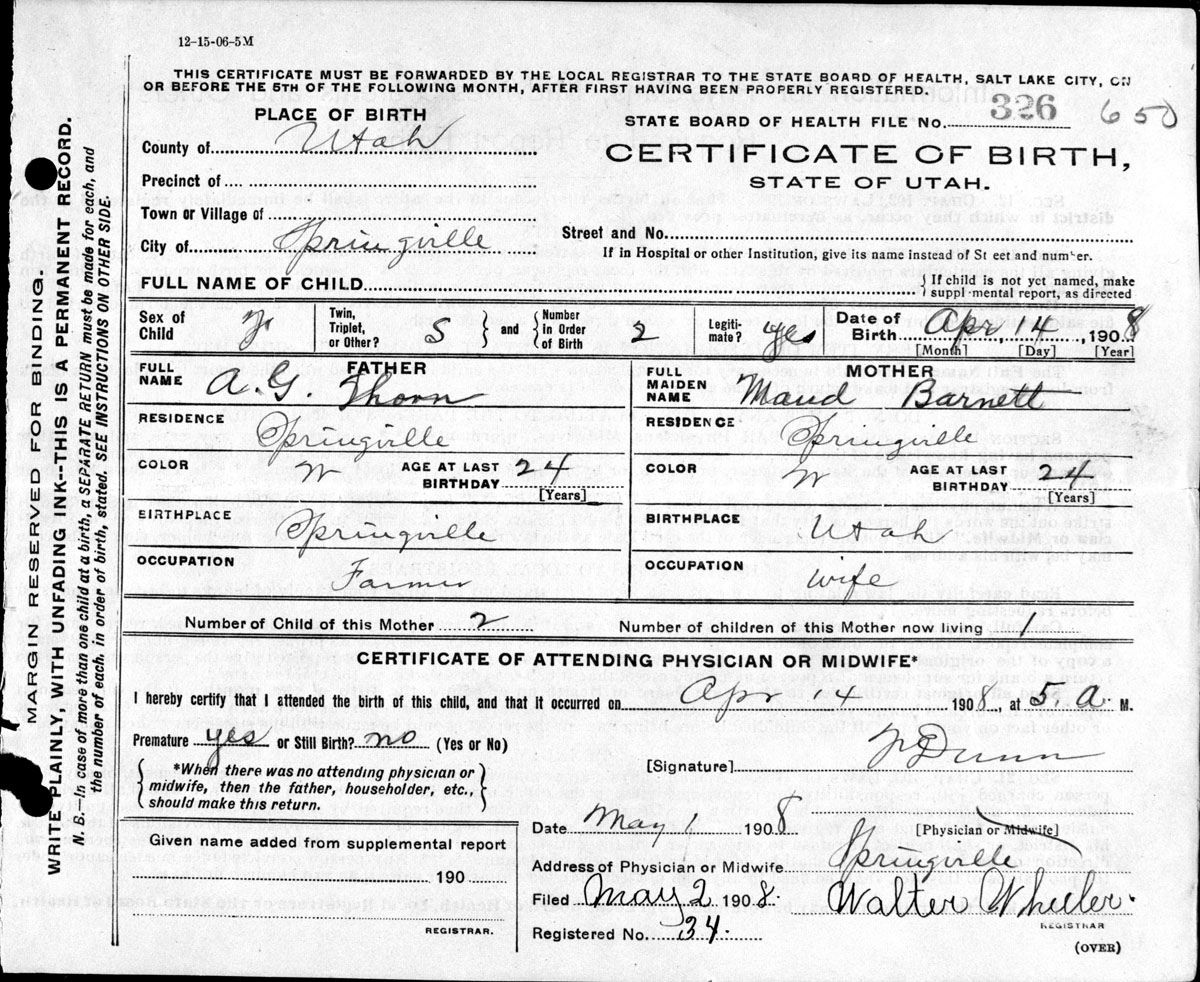 12-15-06-5M
THIS CERTIFICATE MUST BE FORWARDED BY THE LOCAL REGISTRAR TO THE STATE BOARD OF HEALTH, SALT LAKE CITY, ON
OR BEFORE THE 5TH OF THE FOLLOWING MONTH, AFTER FIRST HAVING BEEN PROPERLY REGISTERED.
MARGIN RESERVED FOR BINDING
WRITE PLAINLY, WITH UNFADING INK--THIS IS A PERMANENT RECORD.
N. B.--In case of more than one child at a birth, a SEPARATE RETURN must be made for each, and
the number of each, in order of birth, stated. SEE INSTRUCTIONS ON OTHER SIDE.
PLACE OF BIRTH
County of Utah
Precinct of
Town or Village of
City of Springville
STATE BOARD OF HEALTH FILE No. 326 650
CERTIFICATE OF BIRTH,
STATE OF UTAH.
Street and No.
If in Hospital or other Institution, give its name instead of St eet and number.
FULL NAME OF CHILD
{ If child is not yet named, make
supplemental report, as directed
Sex of Child
Twin, Triplet, or Other? S } and { Number in Order of Birth 2
Legitimate? yes
Date of Birth Apr, 4, 1908
[Month] [Day] [Year]
FATHER
FULL NAME A. G. Thorn
RESIDENCE Springville
COLOR W AGE AT LAST BIRTHDAY 24
[Years]
BIRTHPLACE Springville
OCCUPATION Farmer
MOTHER
FULL MAIDEN NAME Maud Barnett
RESIDENCE Springville
COLOR W AGE AT LAST BIRTHDAY 24
[Years]
BIRTHPLACE Utah
OCCUPATION wife
Number of Child of this Mother 2 Number of children of this Mother now living 1
CERTIFICATE OF ATTENDING PHYSICIAN OR MIDWIFE*
I hereby certify that I attended the birth of this child, and that it occurred on Apr 14 1908, at 5. a. M.
Premature yes or Still Birth? no (Yes or No)
{ *When there was no attending physician or
midwife, then the father, householder, etc.,
should make this return. }
[Signature] Dunn
[Physician or Midwife]
Date May 1 1908
Address of Physician or Midwife Springville
Given name added from supplemental report
190
REGISTRAR.
Filed May 2 1908. Walter Wheeler.
REGISTRAR
Registered No. 34.
(OVER)